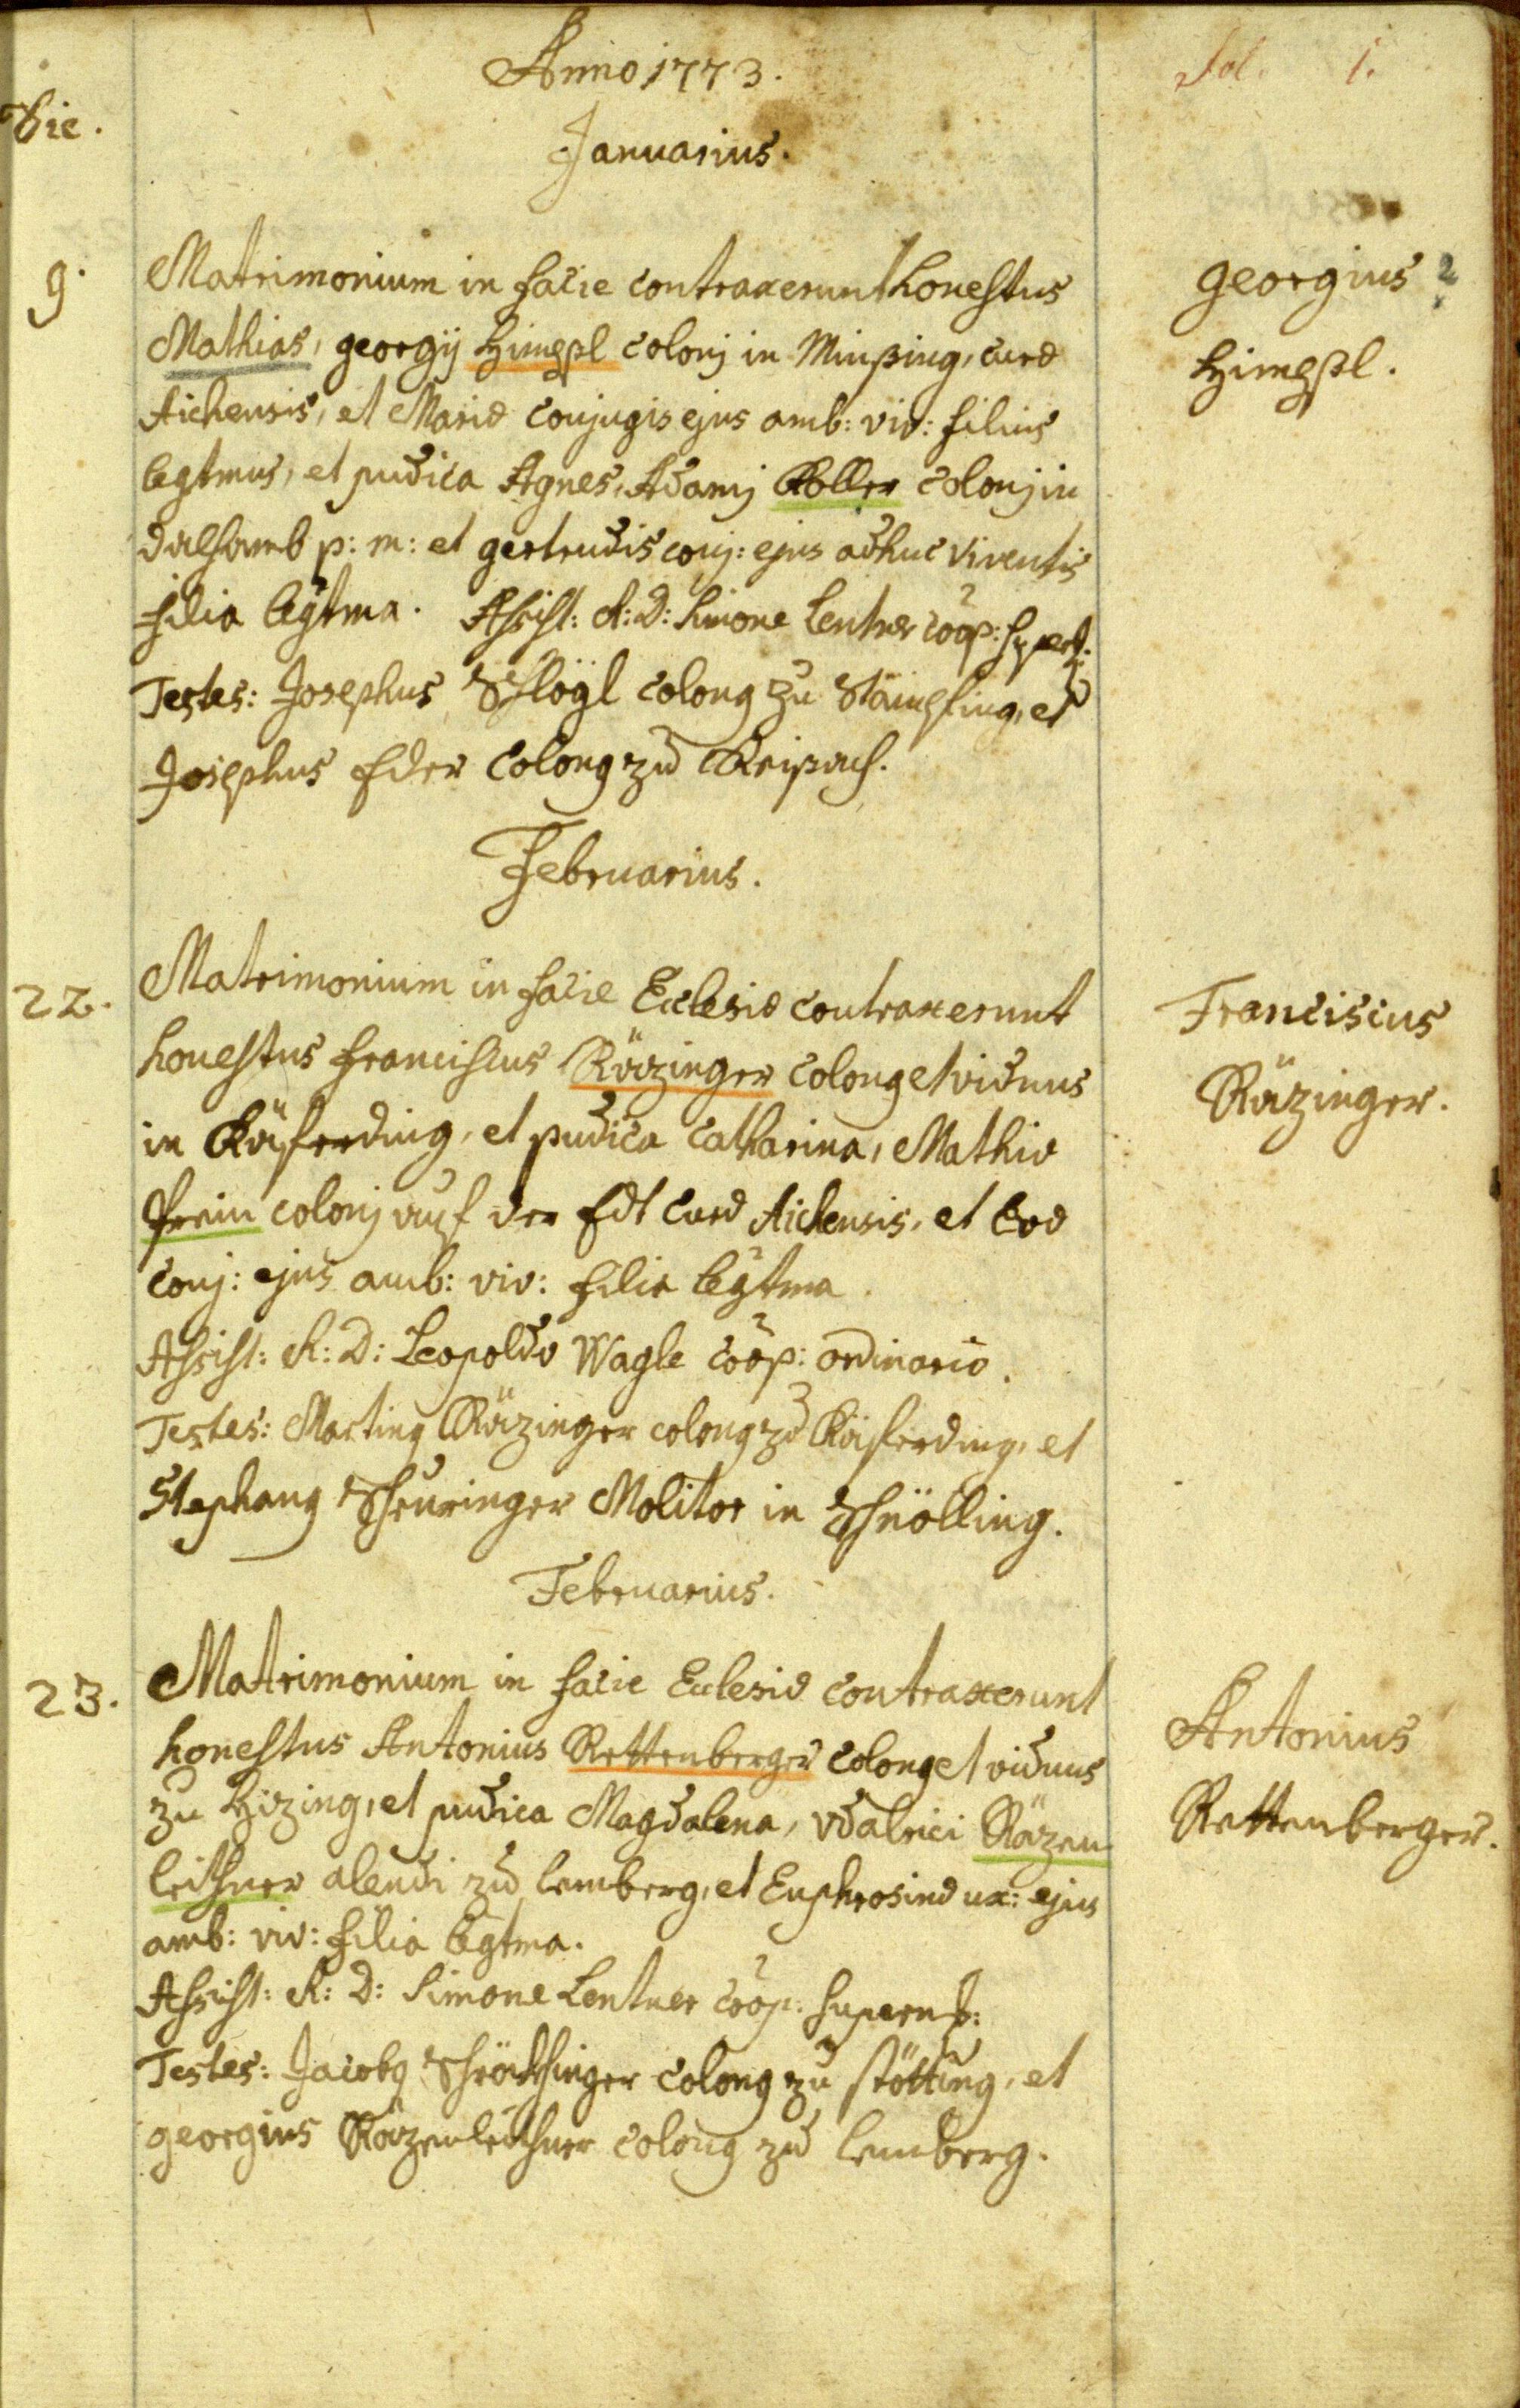 Anno 1773.
Fol. 1.
Die.
Januarius.
9. Matrimonium in facie contraxerunt honestus
Mathias, georgij Himßl colonj in Minßing, curæ
Aichensis, et Mariæ conjugis ejus amb: viv: filius
legtmus, et pudica Agnes, Adamj Koller colonj in
p: m: et gertrudis conj: ejus adhuc viventis
filia legtma. Assist: A: R: D: Simone Lentner coop:
Testes: Josephus Schlögl colong zu et
Josephus Eder colong zu
georgius 2
Himßl.
Februarius.
22. Matrimonium in facie Ecclesiæ contraxerunt
honestus franciscus Räzinger colong et viduus
in Käferding, et pudica Catharina, Mathiæ
Prein colonj auf der Edt curæ Aichensis, et Evæ
conj: ejus amb: viv: filia legtma.
Assist: R: D: Leopoldo Wagle coop: ordinario.
Testes: Marting Räzinger colong zu Käferding, et
Stephang Scheuringer Molitor in Schnölling.
Franciscus
Räzinger.
Februarius.
23. Matrimonium in facie Eclesiæ contraxerunt
honestus Antonius Rettenberger colong et viduus
zu Hizing, et pudica Magdalena, Udalrici Räzen
leithner alendi zu lemberg, et Euphrosinæ ux: ejus
amb: viv: filia legtma.
Assist: R: D: Simone Lentner coop: supern:
Testes: Jacobg colong zu stötting, et
georgius Räzenleithner colong zu lemberg.
Antonius
Rettenberger.